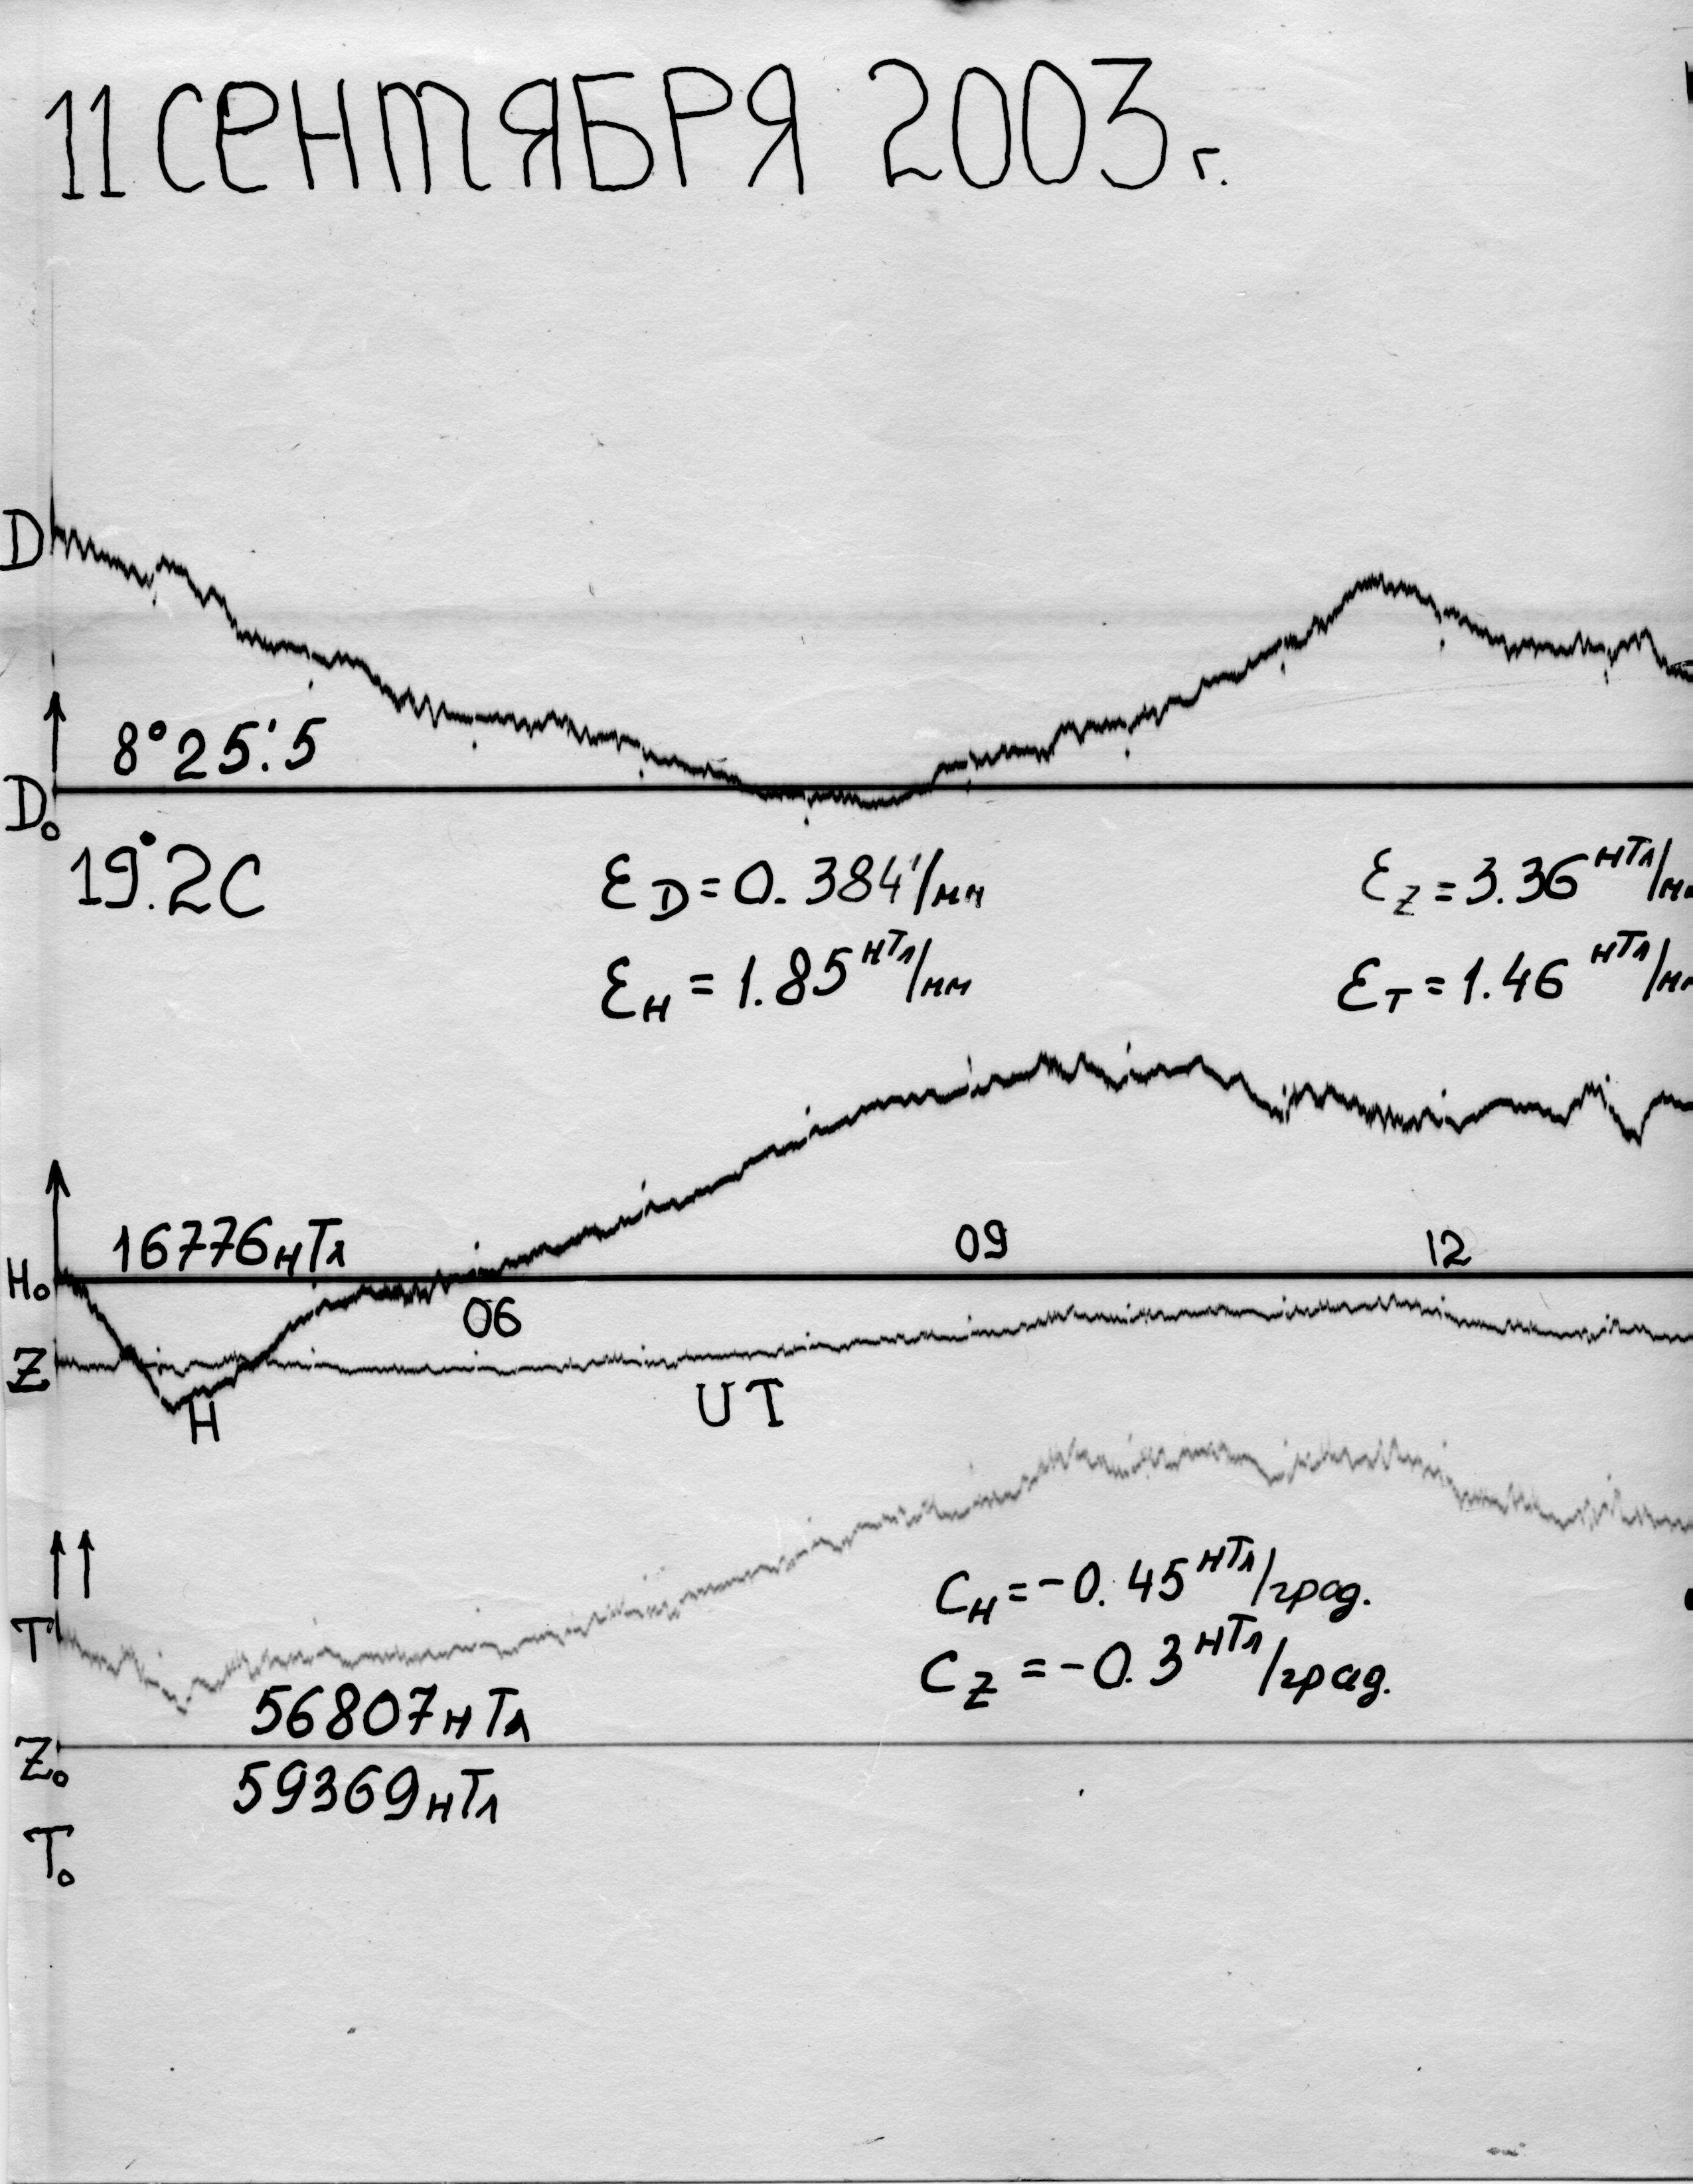 11 сентября 2003 г.
D
8°25.'5
D₀
19.°2C
ε_D = 0.384'/мм
ε_Z = 3.36 нТл/мм
ε_H = 1.85 нТл/мм
ε_T = 1.46 нТл/мм
16776 нТл
09
12
H₀
06
Z
H
UT
C_H = -0.45 нТл/град.
T
C_Z = -0.3 нТл/град.
56807 нТл
Z₀
59369 нТл
T₀